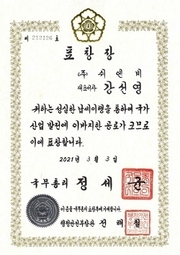 제 212196 호
표 창 장
(주) 서연비
대표이사 강선영
귀하는 성실한 납세이행을 통하여 국가
산업 발전에 이바지한 공로가 크므로
이에 표창합니다.
2021년 3월 3일
국무총리 정세균
이 증을 국무총리표창부에 기입합니다.
행정안전부장관 전해철